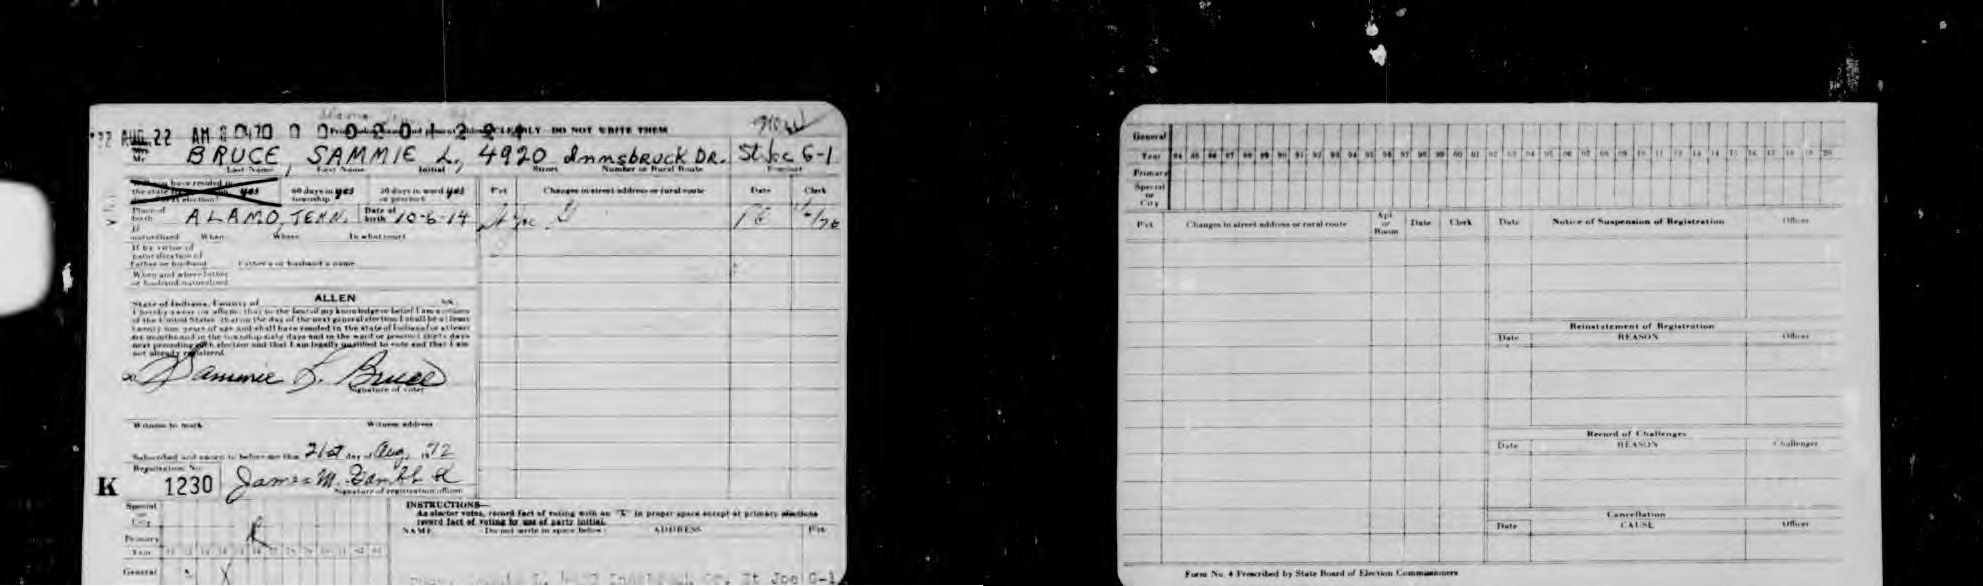 '72 AUG 22 AM 8
CLEARLY - DO NOT WRITE THEM
Mr
BRUCE, SAMMIE L, 4920 Innsbruck DR. St Joe 6-1
Last Name First Name Initial Street Number or Rural Route Precinct
you have resided in
the state yes 60 days in yes 30 days in ward yes Pct Changes in street address or rural route Date Clerk
election? township or precinct
Place of birth ALAMO, TENN. Date of birth 10-6-14
If naturalized When Where In what court
If by virtue of
naturalization of
father or husband Father's or husband's name
When and where father
or husband naturalized
State of Indiana, County of ALLEN SS:
I hereby swear (or affirm) that to the best of my knowledge or belief I am a citizen
of the United States, that on the day of the next general election I shall be at least
twenty-one years of age and shall have resided in the state of Indiana for at least
six months and in the township sixty days and in the ward or precinct thirty days
next preceding such election and that I am legally qualified to vote and that I am
not already registered.
Sammie L. Bruce
Signature of voter
Witness to mark Witness address
Subscribed and sworn to before me this 21st day of Aug, 1972
Registration No.
K 1230 James M.
Signature of registration officer
Special
or
City
Primary
Year
General
INSTRUCTIONS—
As elector votes, record fact of voting with an "X" in proper space except at primary elections
record fact of voting by use of party initial.
NAME Do not write in space below ADDRESS Pct.
St Joe 6-1
General
Year 84 85 86 87 88 89 90 91 92 93 94 95 96 97 98 99 00 01 02 03 04 05 06 07 08 09 10 11 12 13 14 15 16 17 18 19 20
Primary
Special
or
City
Pct Changes in street address or rural route Apt or Room Date Clerk Date Notice of Suspension of Registration Officer
Reinstatement of Registration
Date REASON Officer
Record of Challenges
Date REASON Challenger
Cancellation
Date CAUSE Officer
Form No. 4 Prescribed by State Board of Election Commissioners